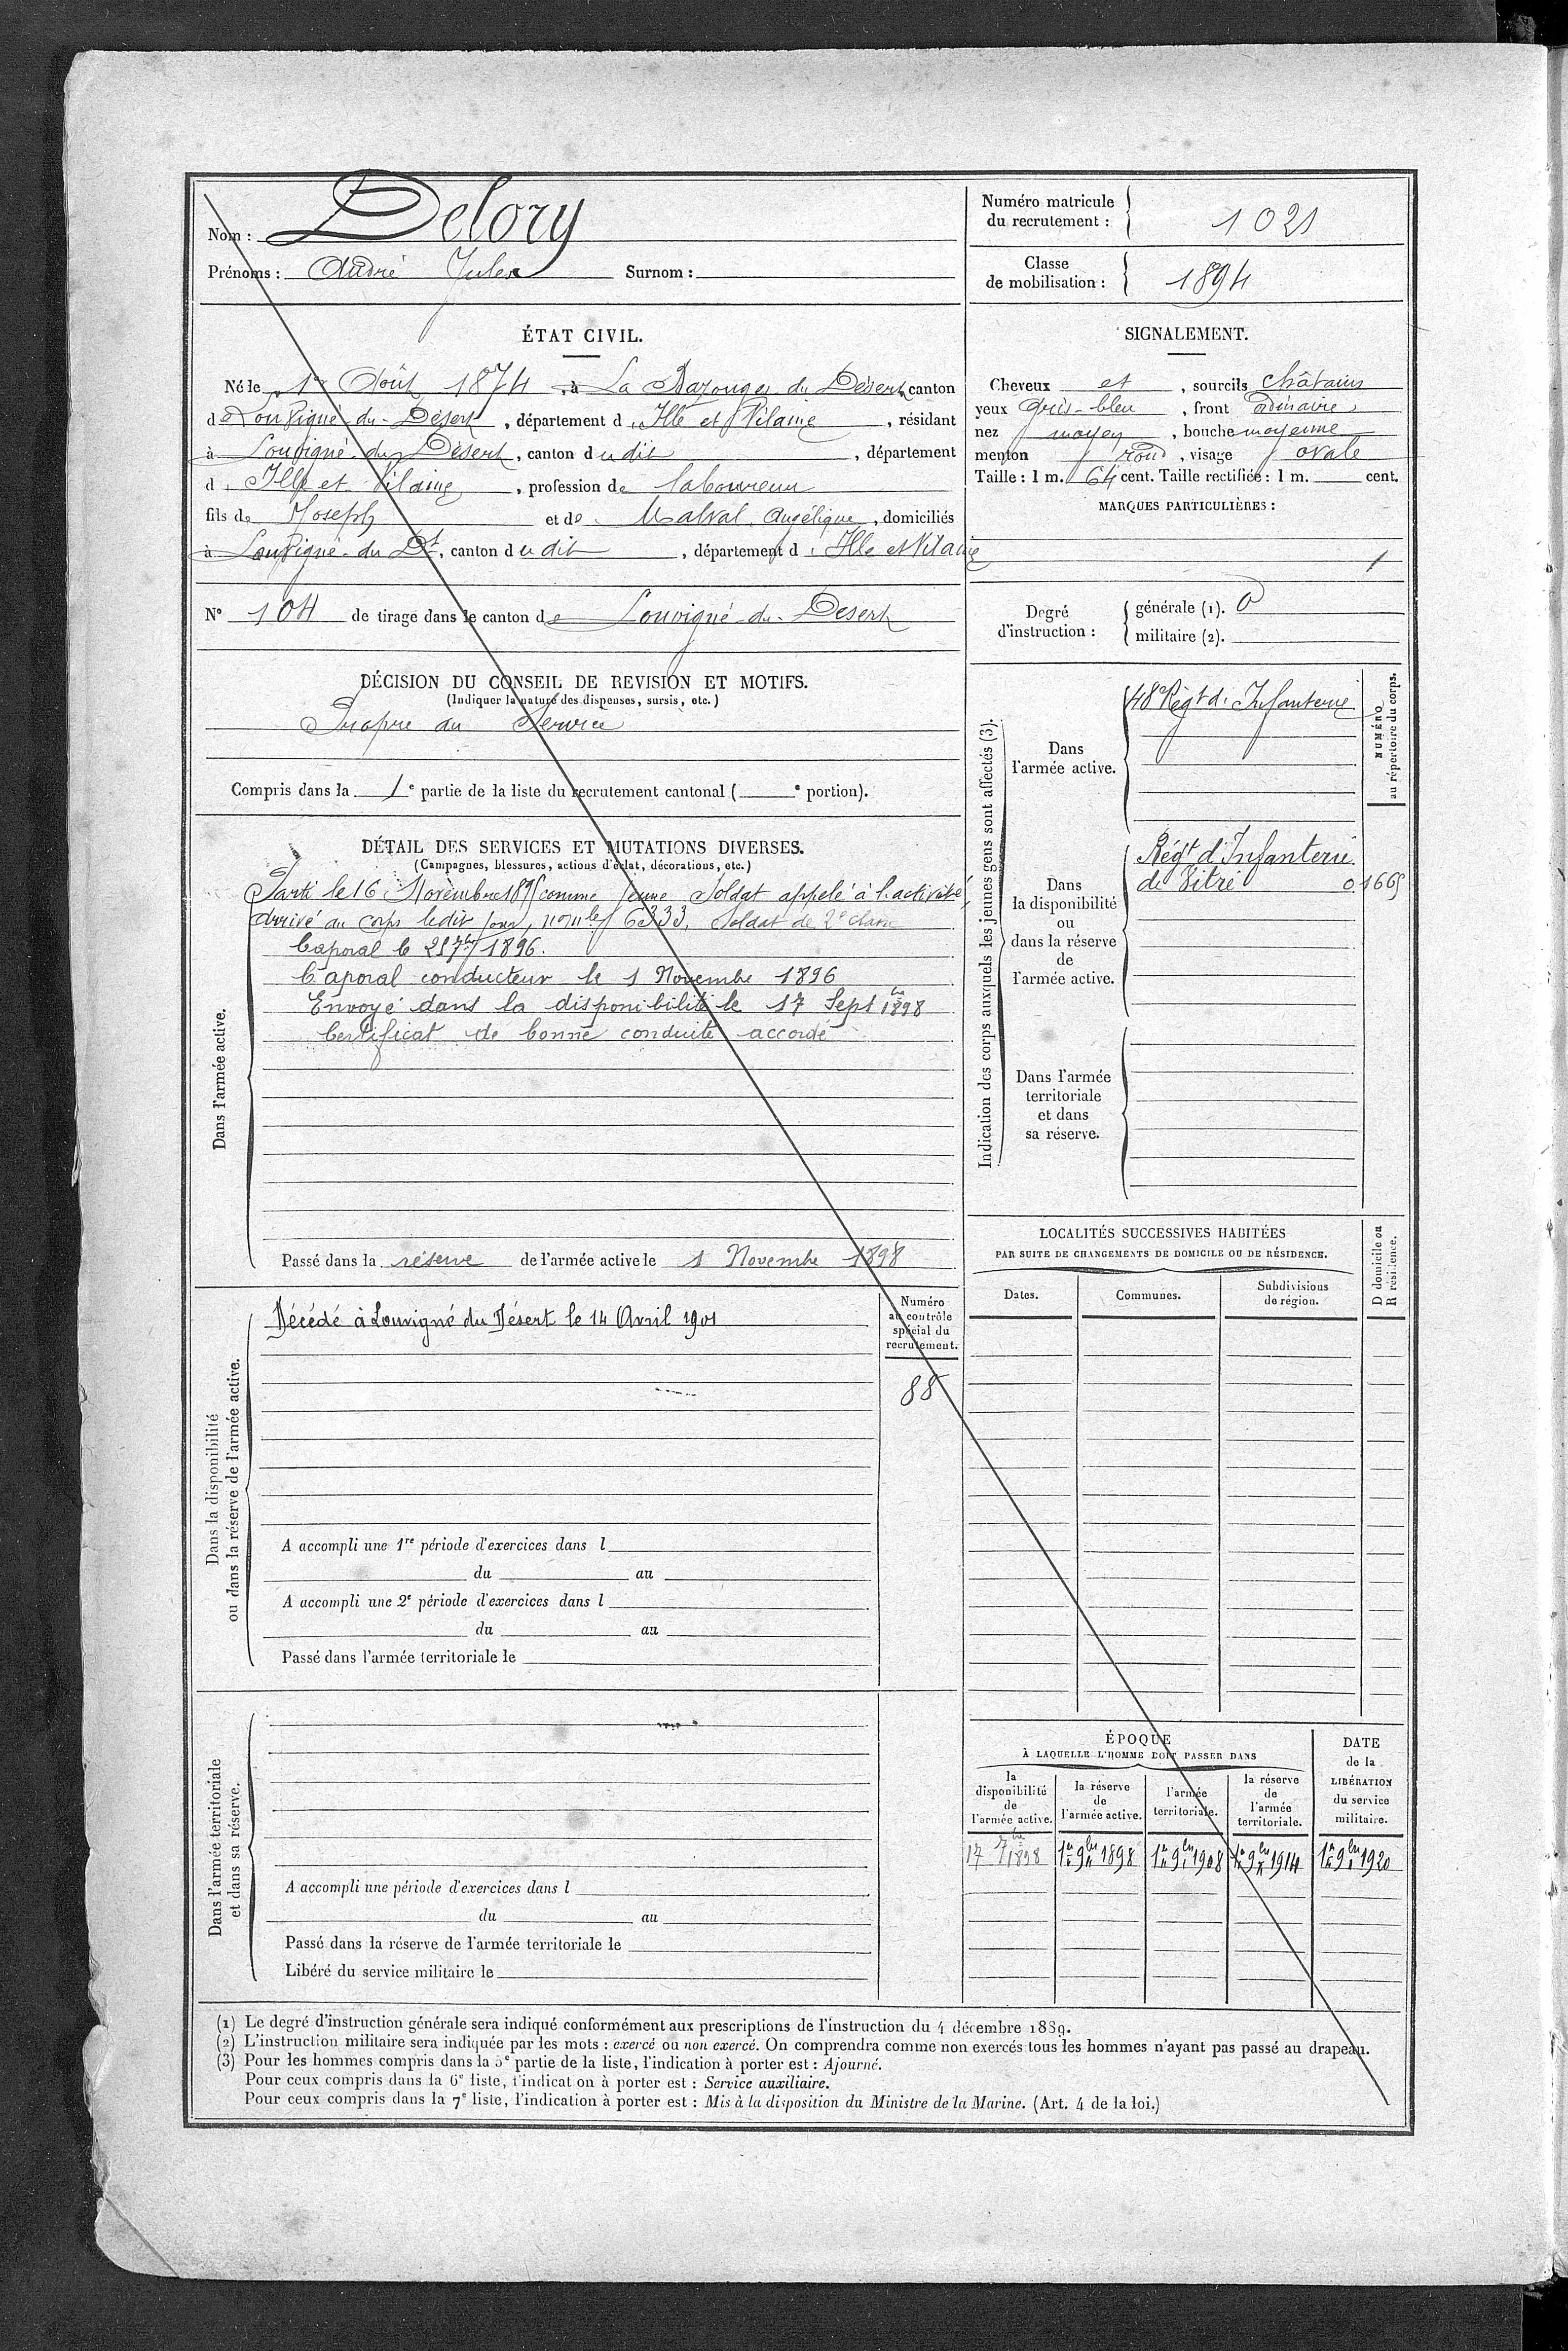 Nom : Delory
Prénoms : André Jules Surnom :
Numéro matricule
du recrutement : 1021
Classe
de mobilisation : 1894
ÉTAT CIVIL.
Né le 1er Août 1874, à La Bazouges du Désert canton
de Louvigné-du-Désert, département d'Ille et Vilaine, résidant
à Louvigné-du-Désert, canton dudit, département
d'Ille et Vilaine, profession de laboureur
fils de Joseph et de Malval Angélique, domiciliés
à Louvigné-du-Dt, canton dudit, département d'Ille et Vilaine
N° 104 de tirage dans le canton de Louvigné-du-Désert
SIGNALEMENT.
Cheveux et, sourcils châtains
yeux gris-bleu, front ordinaire
nez moyen, bouche moyenne
menton rond, visage ovale
Taille : 1 m. 64 cent. Taille rectifiée : 1 m. cent.
MARQUES PARTICULIÈRES :
Degré
d'instruction :
générale (1). 0
militaire (2).
DÉCISION DU CONSEIL DE REVISION ET MOTIFS.
(Indiquer la nature des dispenses, sursis, etc.)
Propre au Service
Compris dans la 1e partie de la liste du recrutement cantonal ( e portion).
DÉTAIL DES SERVICES ET MUTATIONS DIVERSES.
(Campagnes, blessures, actions d'éclat, décorations, etc.)
Dans l'armée active.
Parti le 16 Novembre 1895 comme jeune Soldat appelé à l'activité,
arrivé au corps ledit jour, no mle 6333, Soldat de 2e classe
Caporal le 7bre 1896.
Caporal conducteur le 1 Novembre 1896
Envoyé dans la disponibilité le 17 Sept bre 1898
Certificat de bonne conduite accordé
Passé dans la réserve de l'armée active le 1 Novembre 1898
Indication des corps auxquels les jeunes gens sont affectés (3).
NUMÉRO
au répertoire du corps.
Dans
l'armée active.
48e Régt d'Infanterie
Dans
la disponibilité
ou
dans la réserve
de
l'armée active.
Régt d'Infanterie
de Vitré 01665
Dans l'armée
territoriale
et dans
sa réserve.
Dans la disponibilité
ou dans la réserve de l'armée active.
Décédé à Louvigné du Désert le 14 Avril 1901
Numéro
au contrôle
spécial du
recrutement.
88
A accompli une 1re période d'exercices dans l
du au
A accompli une 2e période d'exercices dans l
du au
Passé dans l'armée territoriale le
LOCALITÉS SUCCESSIVES HABITÉES
PAR SUITE DE CHANGEMENTS DE DOMICILE OU DE RÉSIDENCE.
D domicile ou
R résidence.
Dates. Communes. Subdivisions
de région.
Dans l'armée territoriale
et dans sa réserve.
A accompli une période d'exercices dans l
du au
Passé dans la réserve de l'armée territoriale le
Libéré du service militaire le
ÉPOQUE
À LAQUELLE L'HOMME DOIT PASSER DANS
la
disponibilité
de
l'armée active.
la réserve
de
l'armée active.
l'armée
territoriale.
la réserve
de
l'armée
territoriale.
DATE
de la
LIBÉRATION
du service
militaire.
17 7bre 1898 1er 9bre 1898 1er 9bre 1908 1er 9bre 1914 1er 9bre 1920
(1) Le degré d'instruction générale sera indiqué conformément aux prescriptions de l'instruction du 4 décembre 1889.
(2) L'instruction militaire sera indiquée par les mots : exercé ou non exercé. On comprendra comme non exercés tous les hommes n'ayant pas passé au drapeau.
(3) Pour les hommes compris dans la 5e partie de la liste, l'indication à porter est : Ajourné.
Pour ceux compris dans la 6e liste, l'indication à porter est : Service auxiliaire.
Pour ceux compris dans la 7e liste, l'indication à porter est : Mis à la disposition du Ministre de la Marine. (Art. 4 de la loi.)